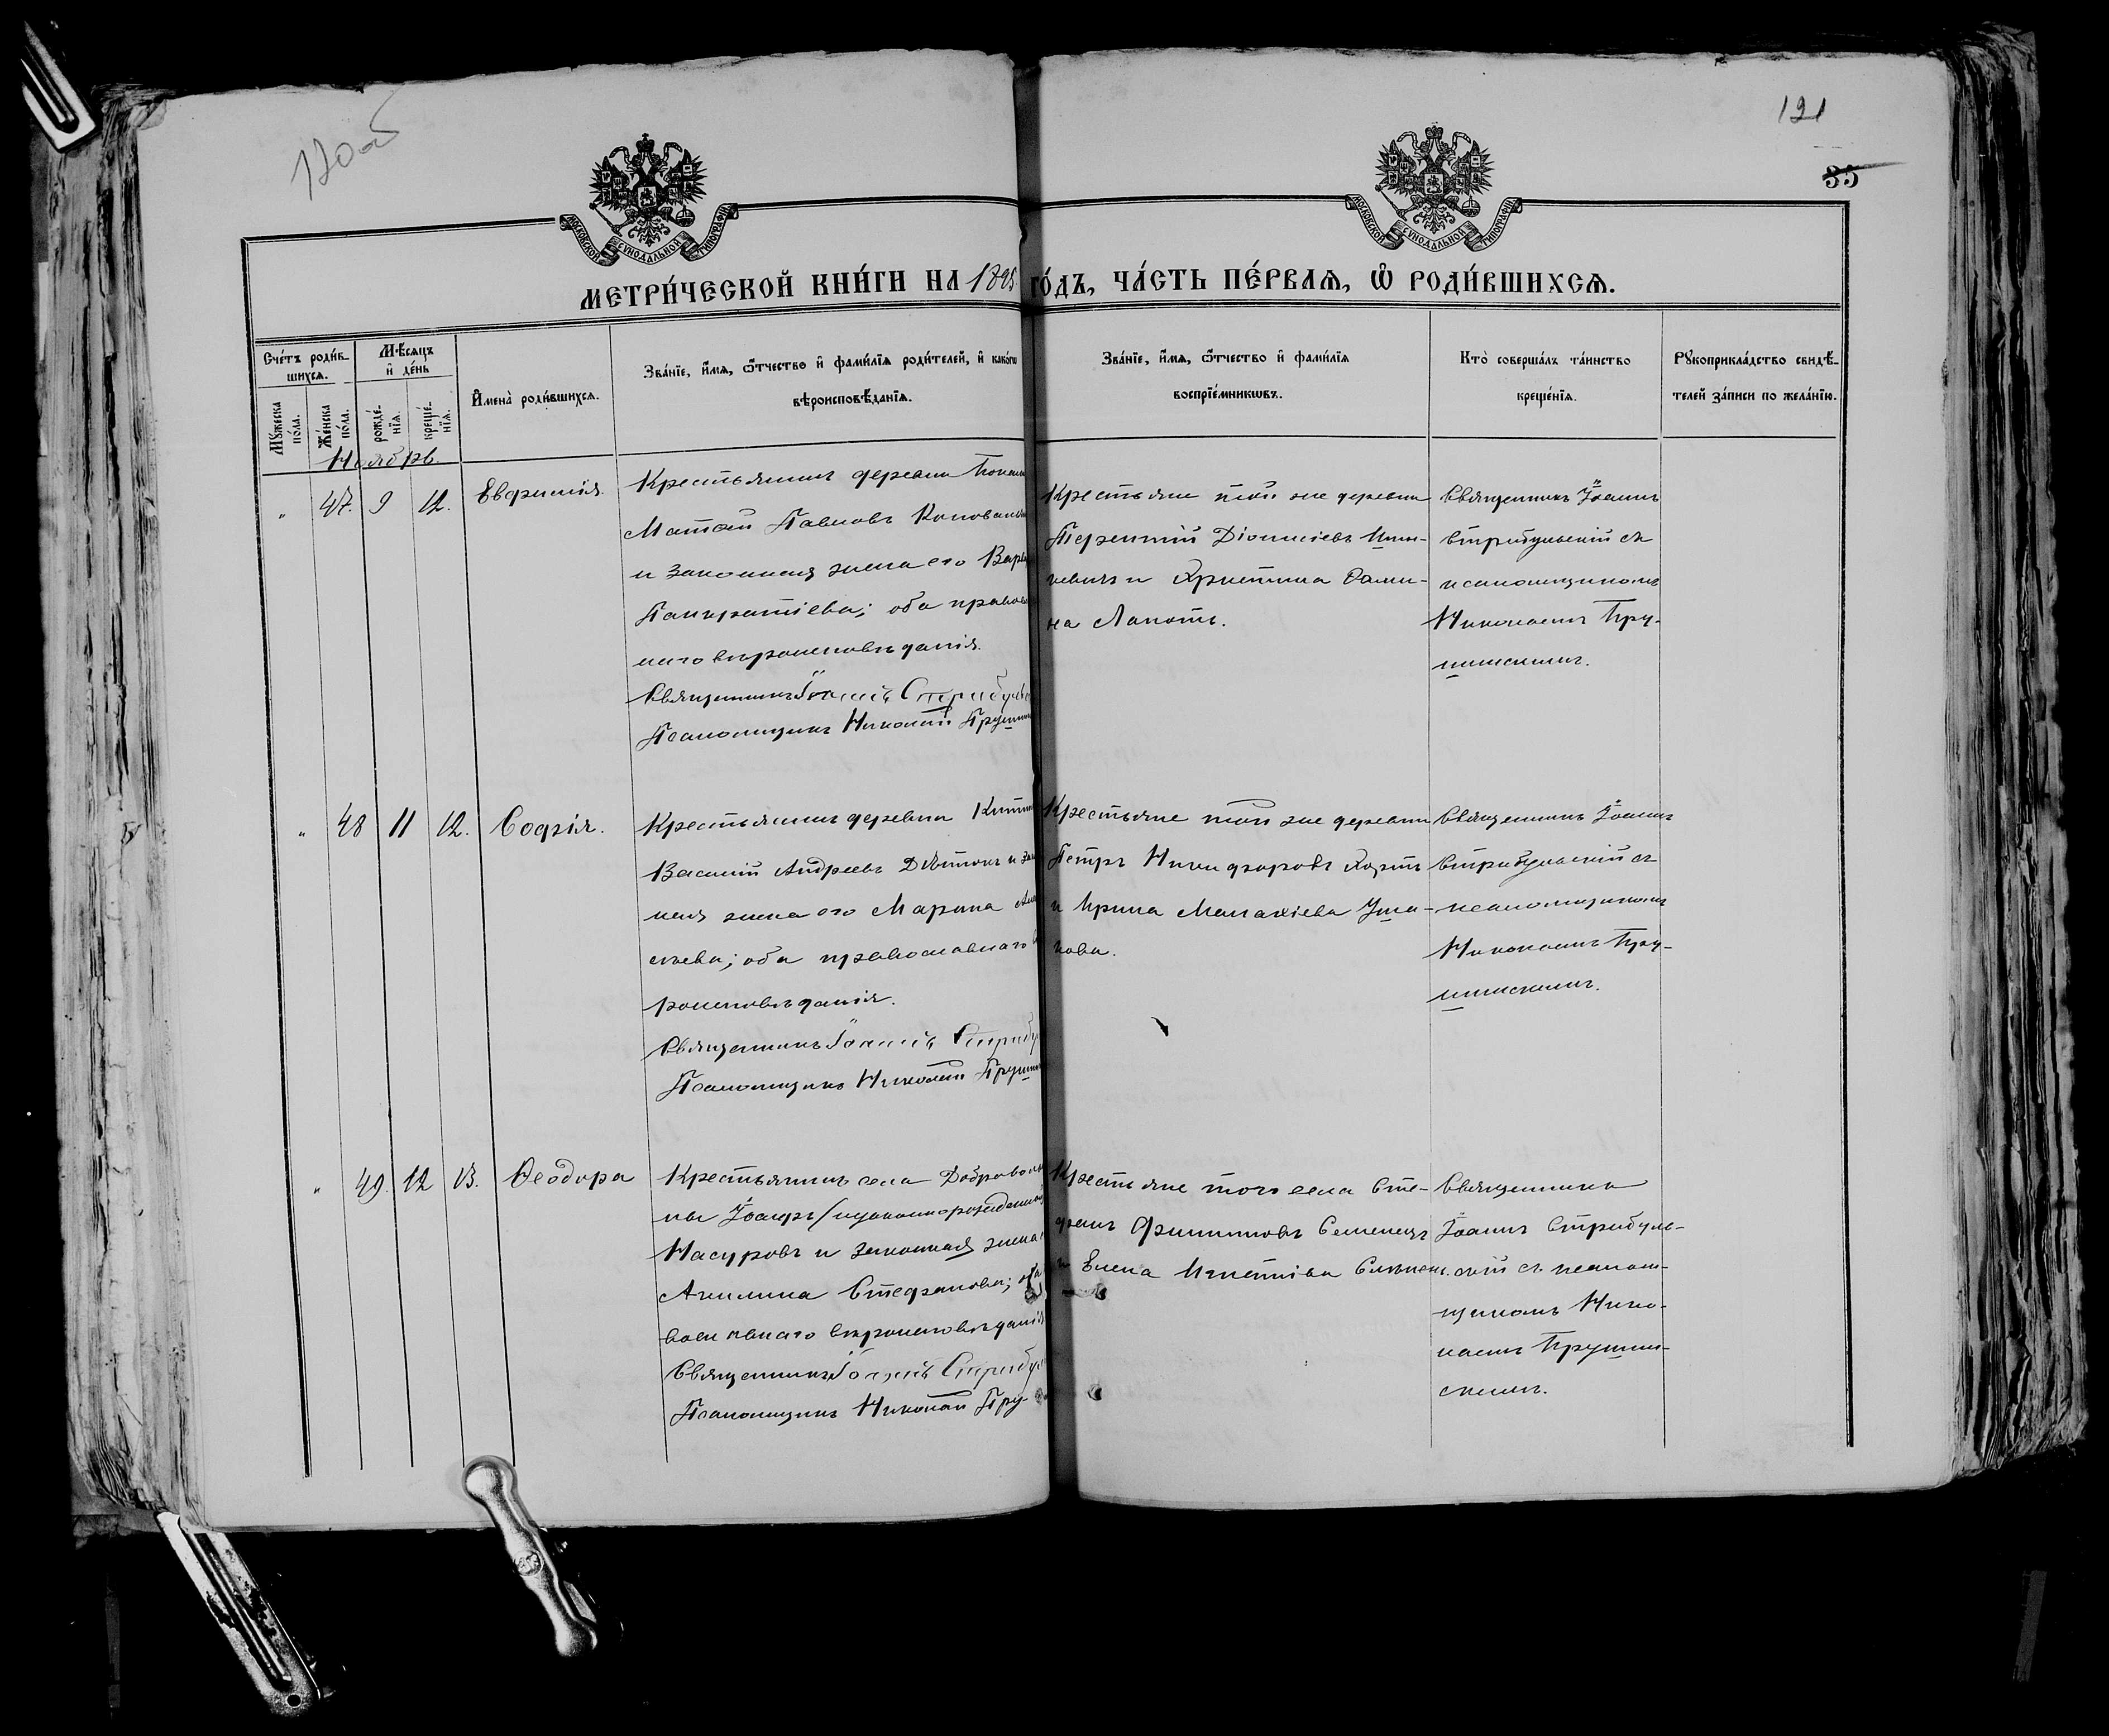 120об
121
35
МОСКОВСКОЙ СУНОДАЛЬНОЙ ТИПОГРАФІИ
МОСКОВСКОЙ СУНОДАЛЬНОЙ ТИПОГРАФІИ
МЕТРИ́ЧЕСКОЙ КНИ́ГИ НА 1895 ГО́ДЪ, ЧА́СТЬ ПЕ́РВАѦ, Ѽ РОДИ́ВШИХСѦ.
Сче́тъ роди́в-
шихсѧ.
Мꙋ́жеска по́ла.
Же́нска по́ла.
Мѣ́сѧцъ и҆ де́нь
рожде́-
нїѧ.
креще́-
нїѧ.
И҆мена̀ роди́вшихсѧ.
Зва́нїе, и҆́мѧ, ѻ҆́тчество и҆ фами́лїѧ роди́телей, и҆ како́гѡ
вѣроисповѣ́данїѧ.
Зва́нїе, и҆́мѧ, ѻ҆́тчество и҆ фами́лїѧ
воспрїе́мникѡвъ.
Кто̀ соверша́лъ та́инство
креще́нїѧ.
Рꙋкоприкла́дство свидѣ́-
телей за́писи по жела́нїю.
Ноябрь.
" 47. 9 12. Евфимія.
Крестьянинъ деревни
Матѳей Павловъ
и законная жена его Варв
Панкратіева; оба правосл
наго вѣроисповѣданія.
Священникъ Іоаннъ Стрибуль
Псаломщикъ Николай Прушин
Крестьяне той же деревни
Терентій Діонисіевъ
и Христина
на Лапоть.
Священникъ Іоаннъ
Стрибульскій съ
псаломщикомъ
Николаемъ Пру-
шинскимъ.
" 48 11 12. Софія.
Крестьянинъ деревни
Василій Андреевъ и зак
ная жена его Марина
сѣева; оба православнаго вѣ
роисповѣданія.
Священникъ Іоаннъ Стрибу
Псаломщикъ Николай Прушин
Крестьяне той же деревни
Петръ Никифоровъ Хортъ
и Ирина Малахіева Уша-
кова.
Священникъ Іоаннъ
Стрибульскій съ
псаломщикомъ
Николаемъ Пру-
шинскимъ.
" 49. 12 13. Ѳеодора
Крестьянинъ села Доброволь
ны (незаконнорожденный
и законная жена
Акилина Стефанова; оба
вославнаго вѣроисповѣданія
Священникъ Іоаннъ Стрибу
Псаломщикъ Николай Пру-
Крестьяне того села Сте-
фанъ Филипповъ Семенецъ
и Елена Игнатіева
Священникъ
Іоаннъ Стрибуль-
скій съ псалом-
щикомъ Нико-
лаемъ Прушин-
скимъ.